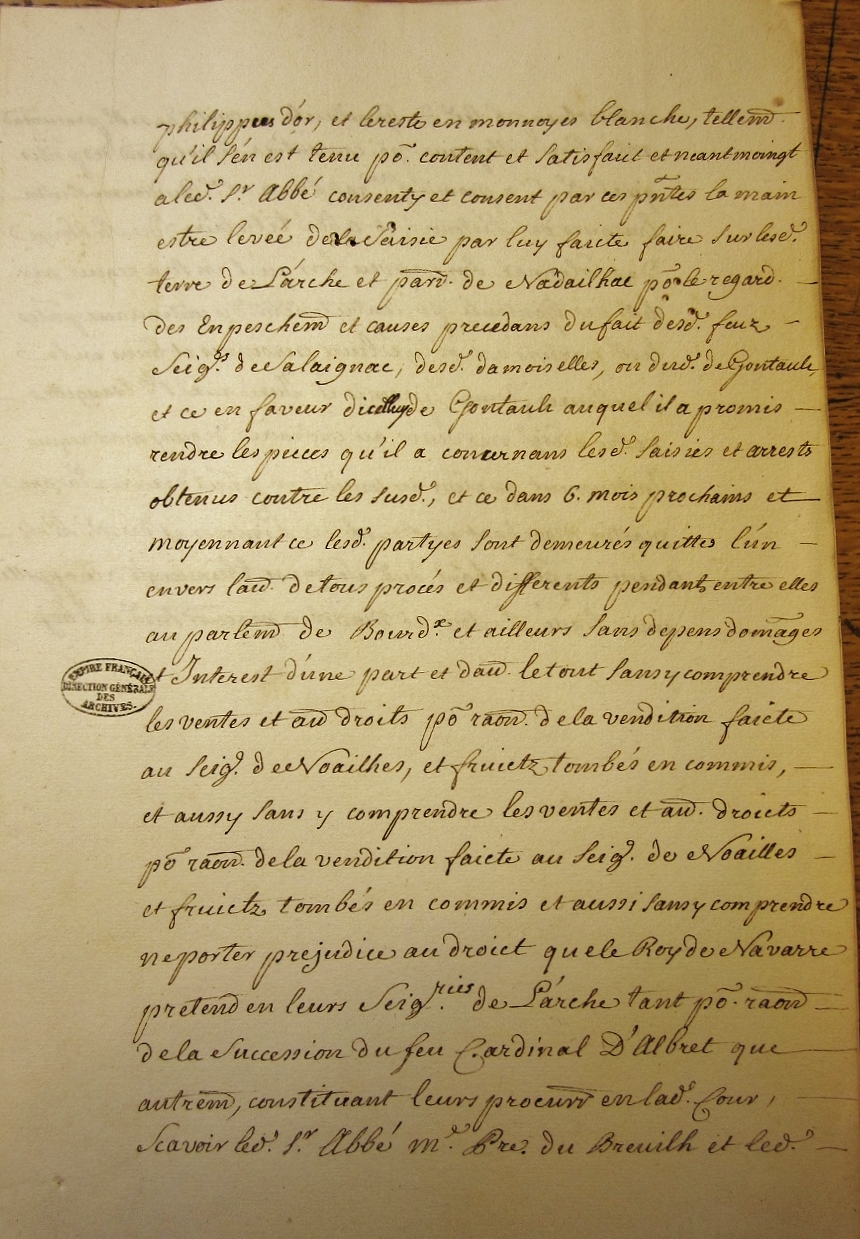 philippus d'or, et le reste en monnoyes blanche, tellem̄
qu'il s'en est tenu pō. content et satisfait et neantmoingt
a led. Sr. Abbé consenty et consent par ces pn̄tes la main
estre levée de la Saisie par luy faicte faire sur lesd.
terre de Larche et parr̄. de Nadailhac pō. le regard.
des Enpeschem̄ et causes precedans du fait desd. feuz
Seigrs. de Salaignac, desd. damoiselles, ou dud. de Gontault,
et ce en faveur d'icelluy de Gontault auquel il a promis
rendre les pieces qu'il a concernans lesd. saisies et arrests
obtenus contre les susd., et ce dans 6. mois prochains et
moyennant ce lesd. partyes sont demeurés quittes l'un
envers l'aū. de tous procés et differents pendants entre elles
au parlem̄ de Bourdx. et ailleurs sans depens domāges
et Interest d'une part et d'aū. le tout sans y comprendre
les ventes et aū droits pō raoñ. de la vendition faicte
au Seigr. de Noailhes, et fruictz tombés en commis,
et aussy sans y comprendre les ventes et aū. droicts
pō raoñ. de la vendition faicte au Seigr. de Noailles
et fruictz tombés en commis et aussi sans y comprendre
ne porter prejudice au droict que le Roy de Navarre
pretend en leurs Seigries. de Larche tant pō. raoñ
de la Succession du feu Cardinal D'Albret que
autrem̄, constituant leurs procurr̄ en lad. Cour,
Scavoir led. Sr. Abbé me. Pre. du Breuilh et led.
EMPIRE FRANÇAIS
DIRECTION GÉNÉRALE
DES
ARCHIVES.